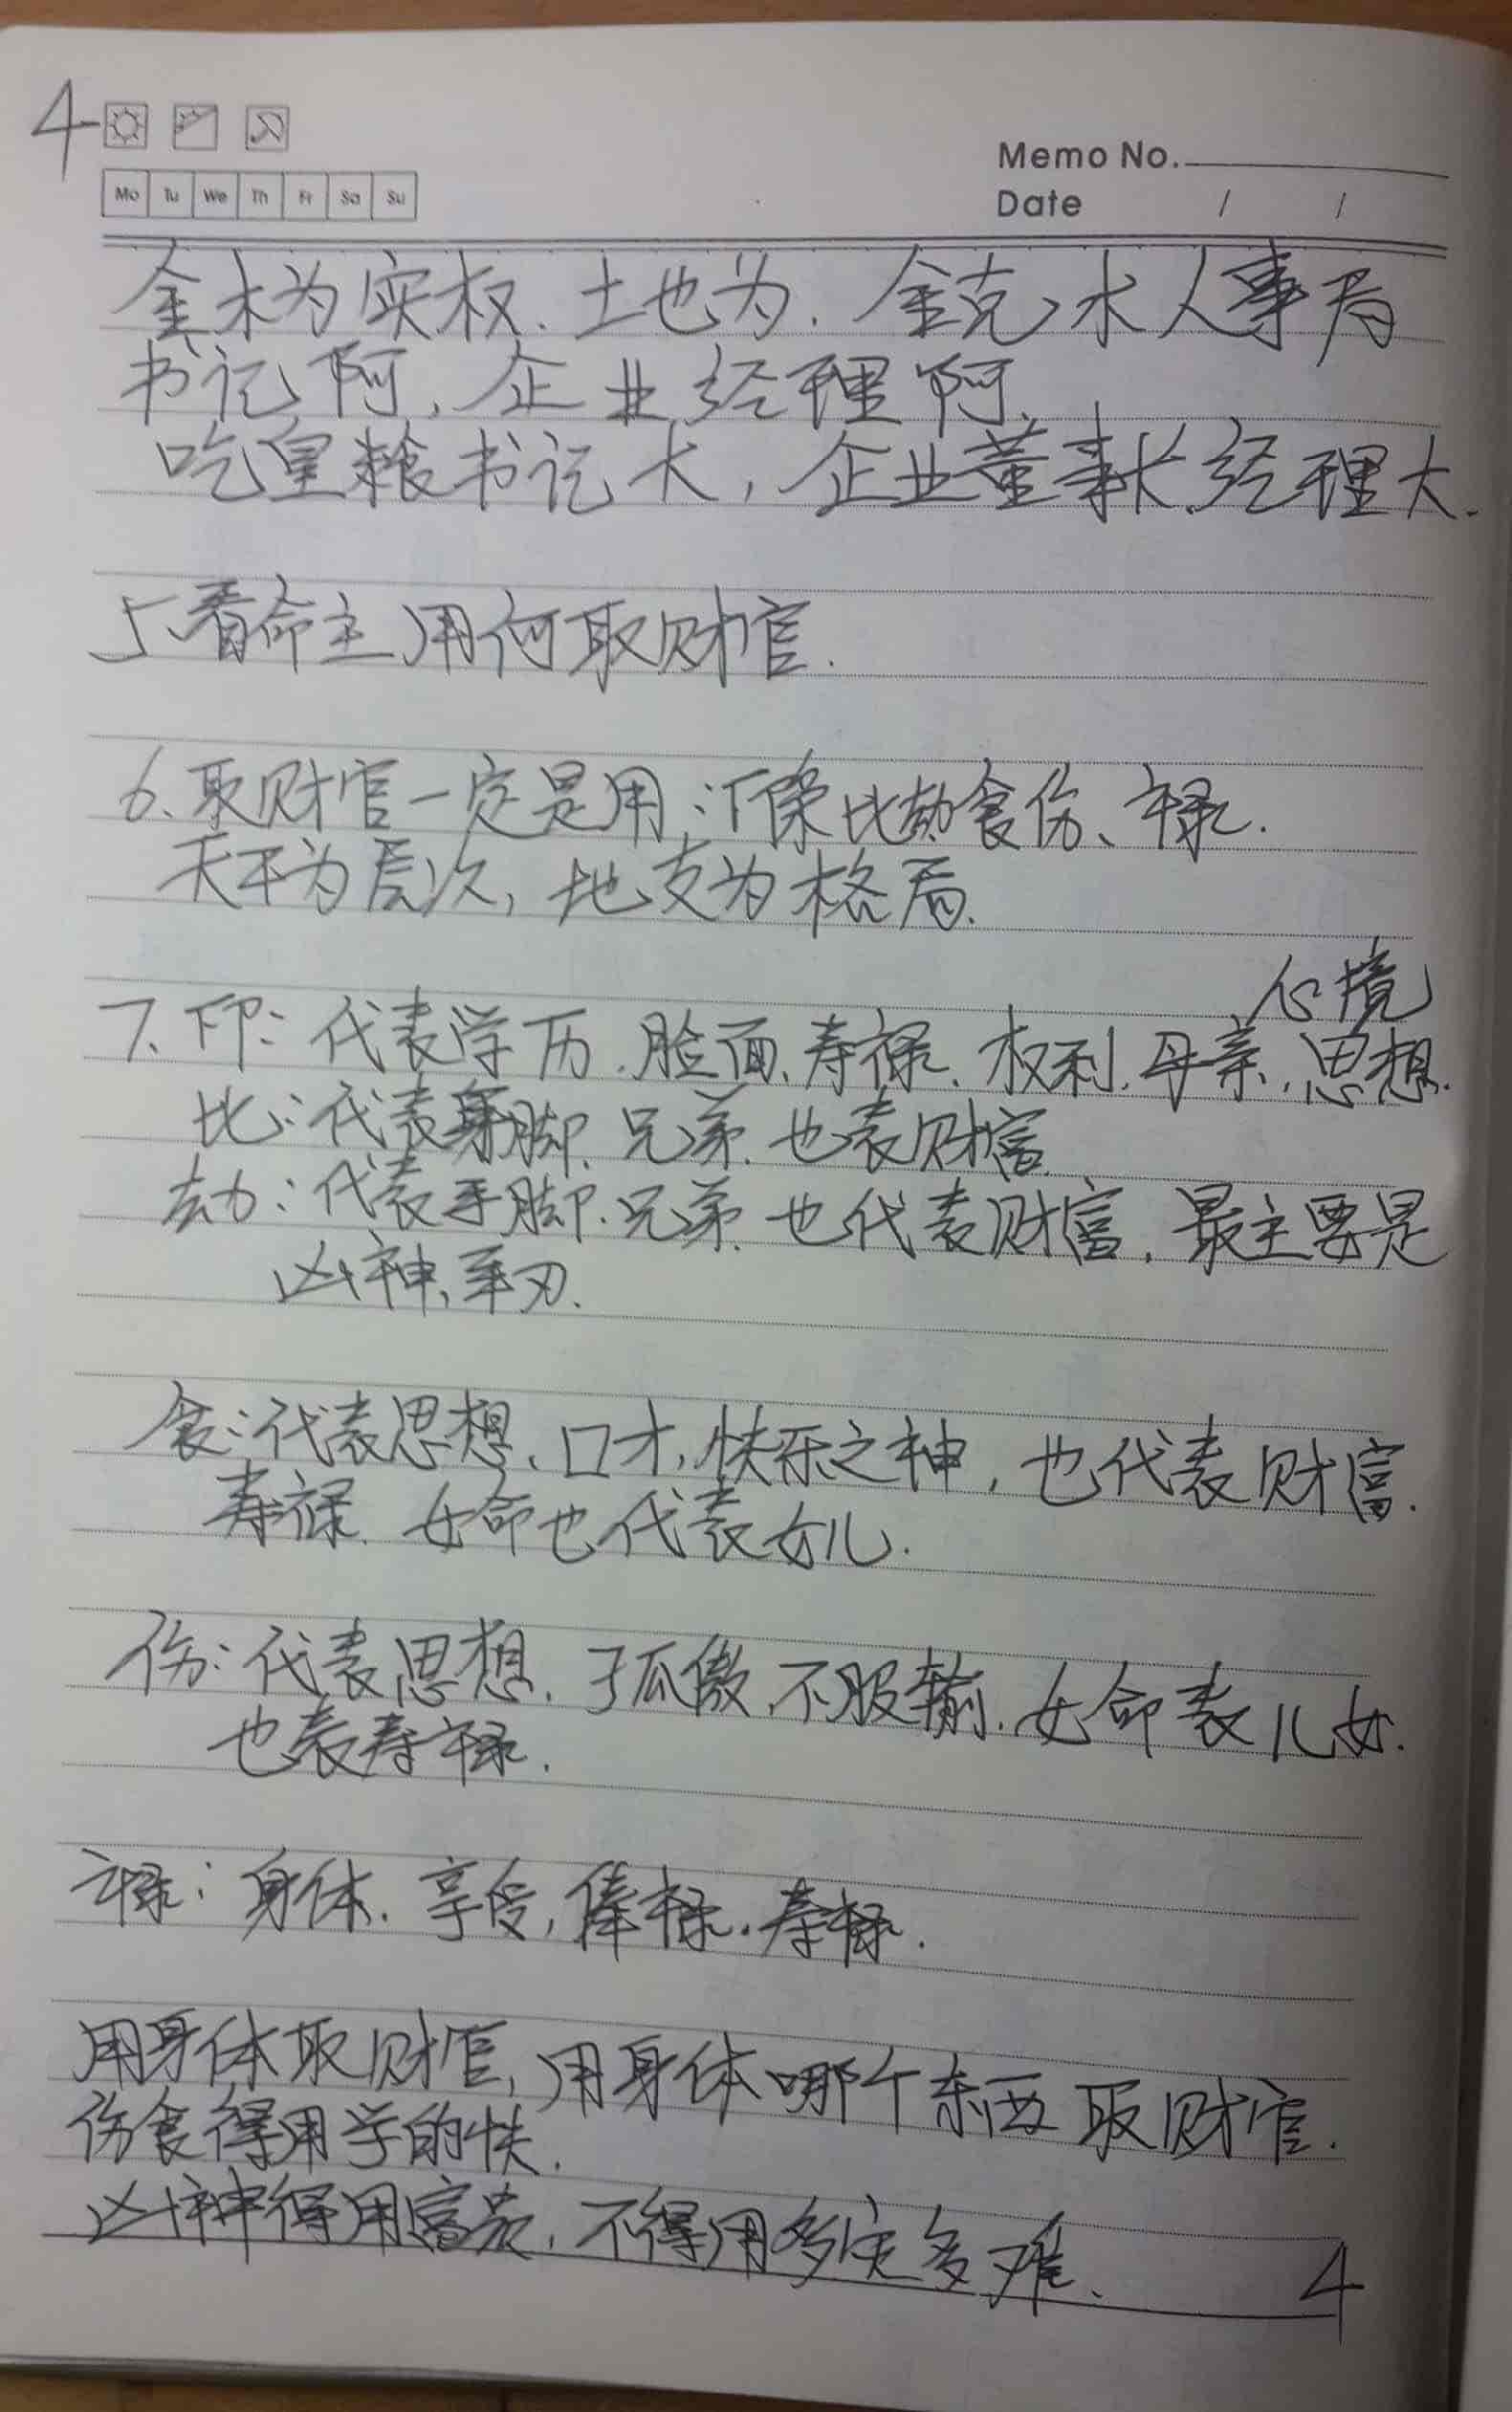 4
Memo No.
Mo Tu We Th Fr Sa Su
Date / /
金木为实权.土也为.金克木人事局
书记啊,企业经理啊.
吃皇粮书记大,企业董事长.经理大.
5、看命主用何取财官.
6、取财官一定是用:比劫食伤、禄.
天干为层次,地支为格局.
心境
7、印:代表学历.脸面、寿禄.权利.母亲.思想.
比:代表手脚.兄弟.也表财富.
劫:代表手脚.兄弟.也代表财富.最主要是
凶神、羊刃.
食:代表思想、口才,快乐之神,也代表财富.
寿禄.女命也代表女儿.
伤:代表思想.孤傲.不服输.女命表儿女.
也表寿禄.
禄:身体.享受,俸禄.寿禄.
用身体取财官,用身体哪个东西取财官.
伤食得用学的快.
凶神得用富贵,不得用多灾多难.
4